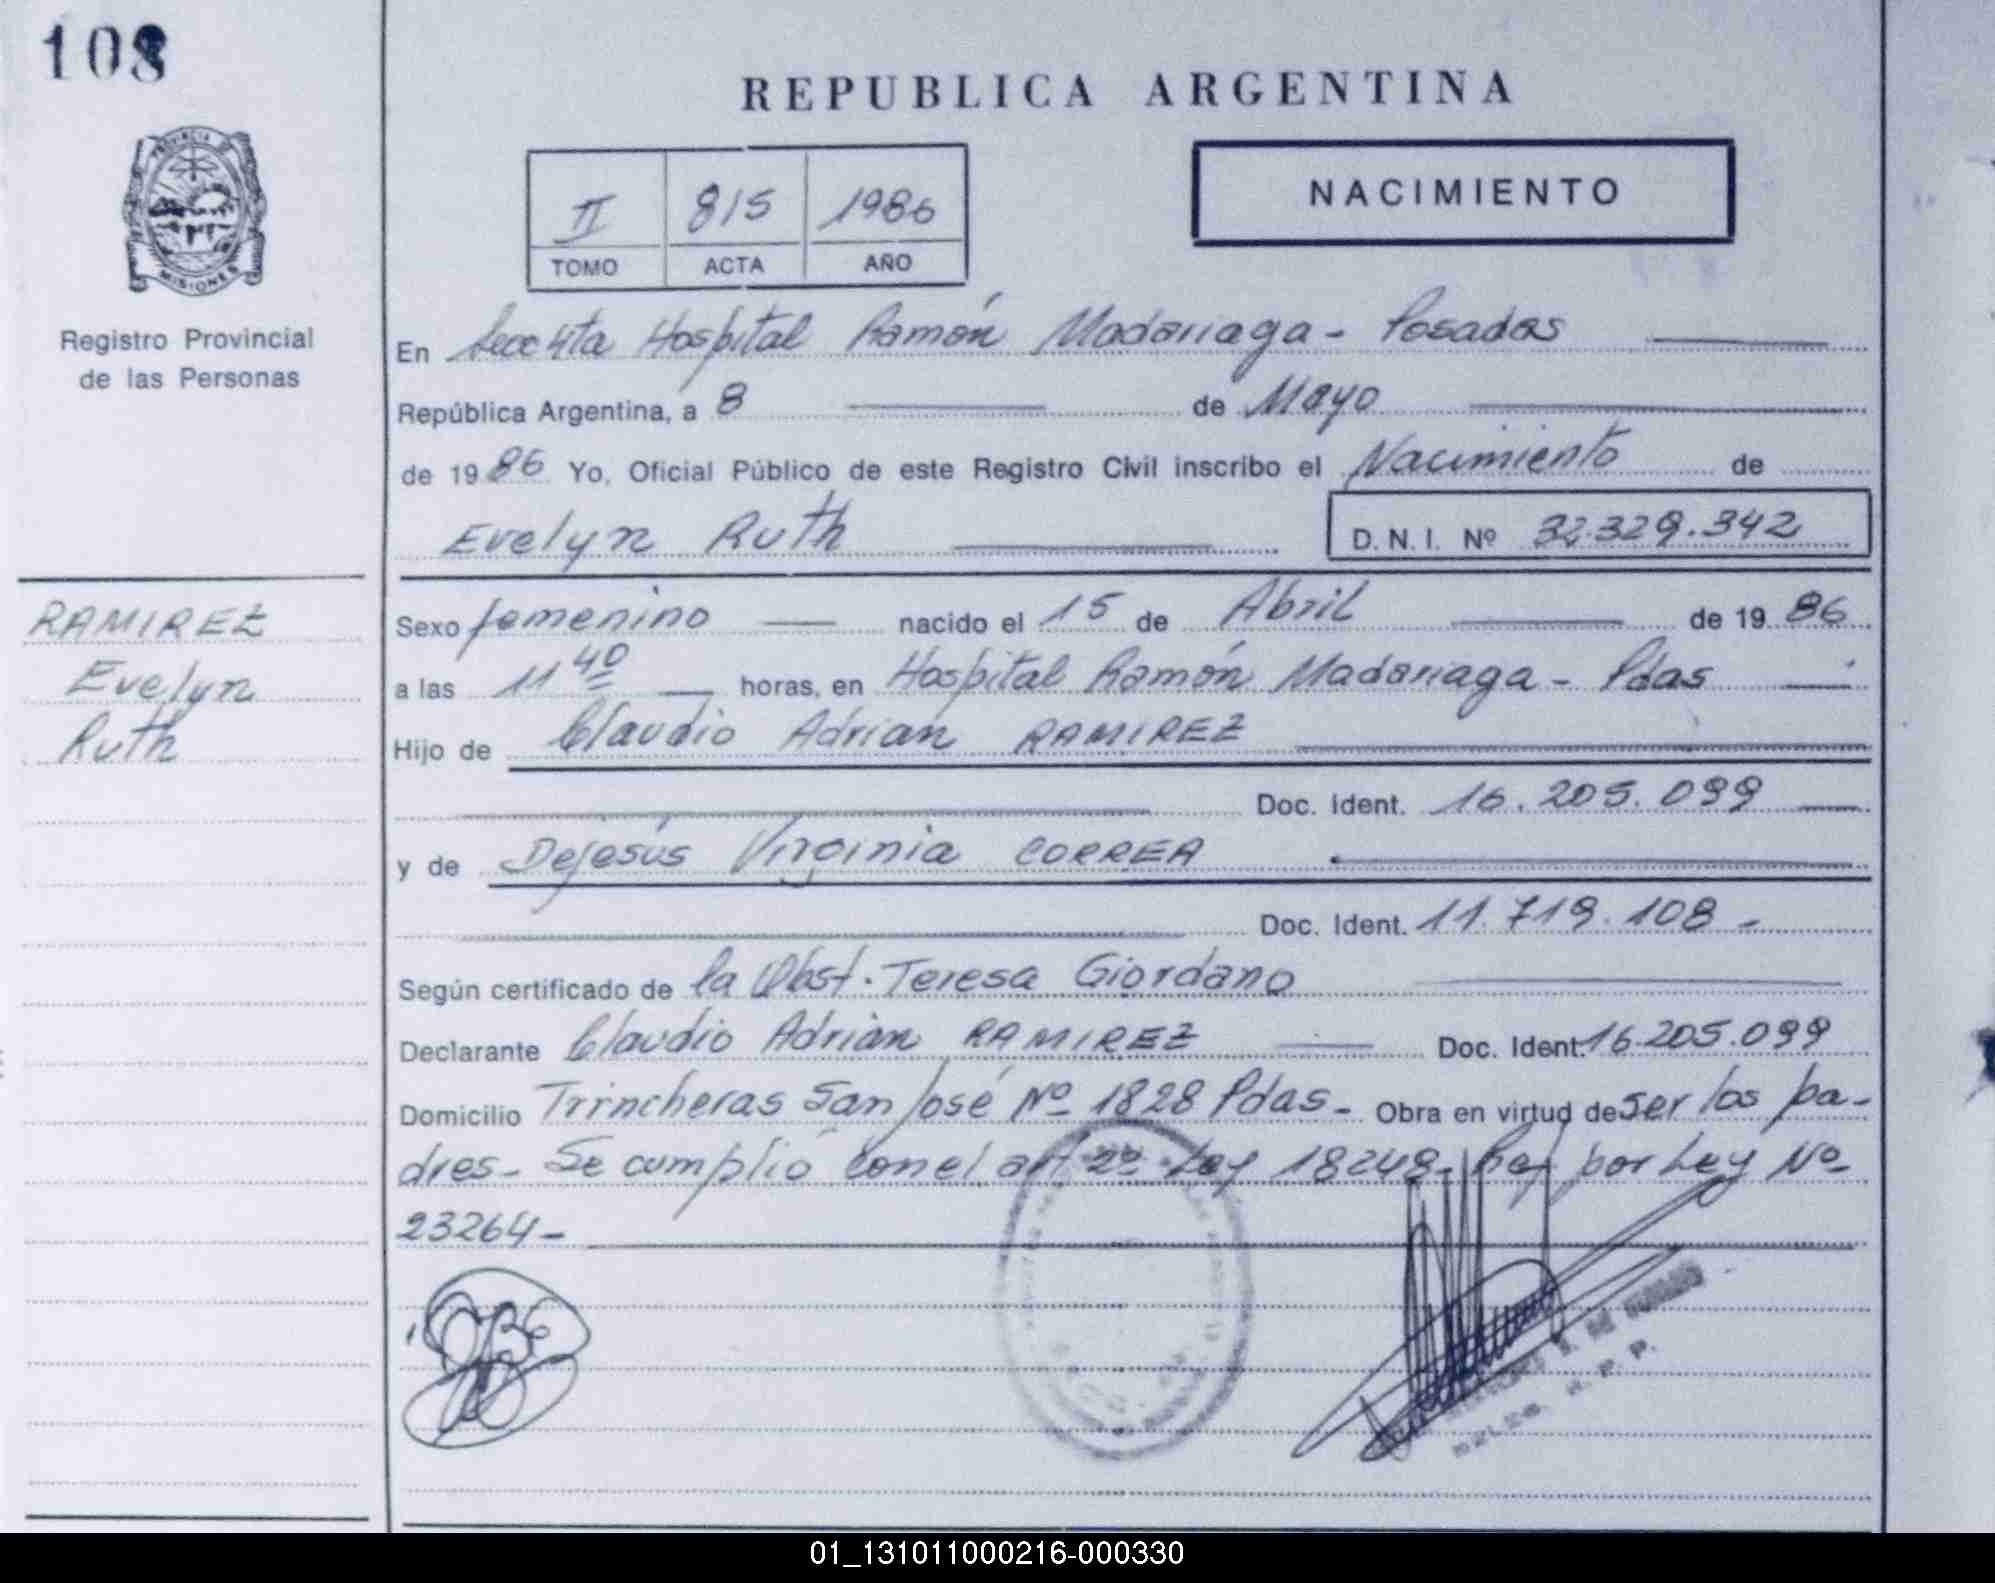 108
REPUBLICA ARGENTINA
PROVINCIA
MISIONES
Registro Provincial
de las Personas
II 815 1986
TOMO ACTA AÑO
NACIMIENTO
En Secc 4ta Hospital Ramón Madariaga - Posadas
República Argentina, a 8 de Mayo
de 1986 Yo, Oficial Público de este Registro Civil inscribo el Nacimiento de
Evelyn Ruth D.N.I. Nº 32.329.342
RAMIREZ
Evelyn
Ruth
Sexo femenino nacido el 15 de Abril de 1986
a las 11 40 horas, en Hospital Ramón Madariaga - Pdas
Hijo de Claudio Adrián RAMIREZ
Doc. Ident. 16.205.099
y de Dejesús Virginia CORREA
Doc. Ident. 11.719.108 -
Según certificado de la Obst. Teresa Giordano
Declarante Claudio Adrián RAMIREZ Doc. Ident. 16.205.099
Domicilio Trincheras San José Nº 1828 Pdas - Obra en virtud de ser los pa-
dres - Se cumplió con el art 2º Ley 18248 - por Ley Nº
23264 -
R. P. P.
01_131011000216-000330